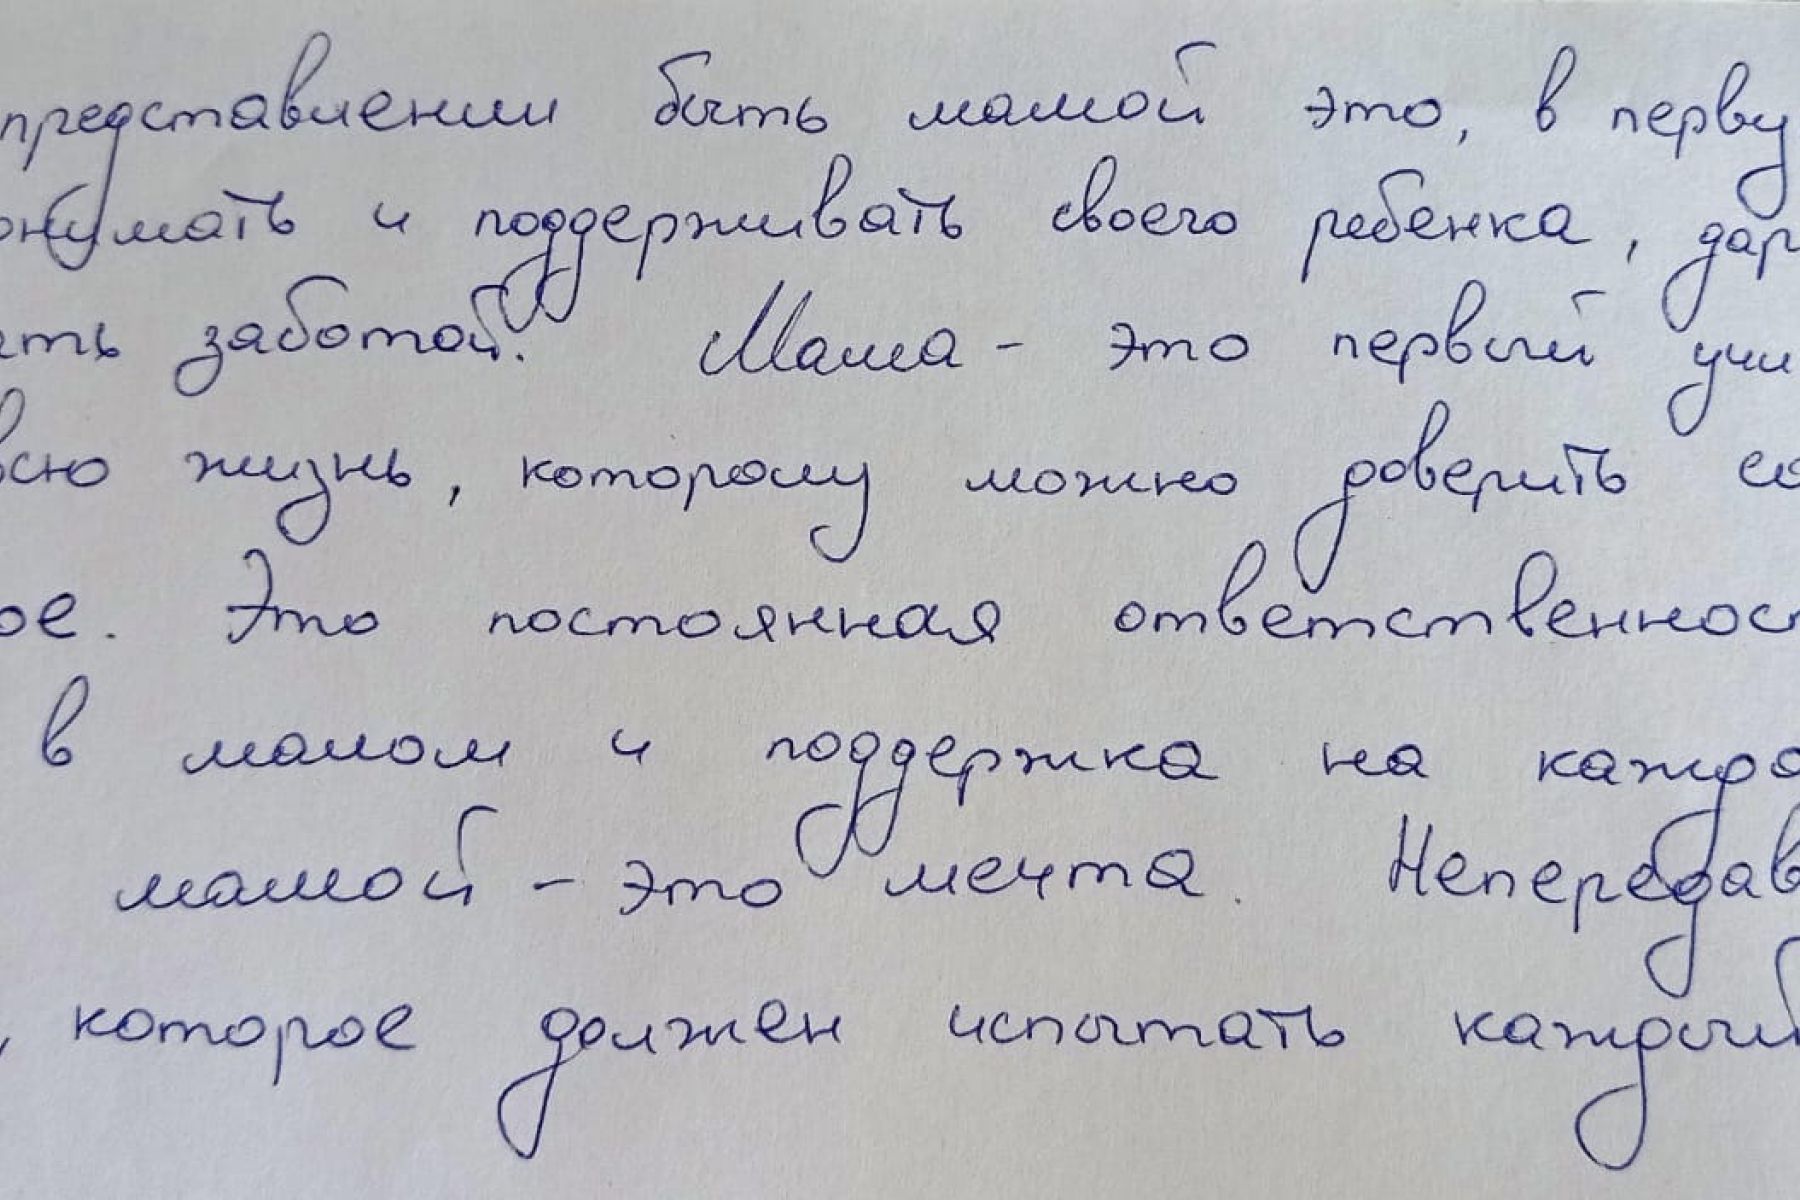 представлении быть мамой это, в перву
онимать и поддерживать своего ребенка, дар
ать заботой. Мама - это первый учи
всю жизнь, которому можно доверить со
ое. Это постоянная ответственност
в малом и поддержка на каждо
мамой - это мечта. Непередав
, которое должен испытать каждый